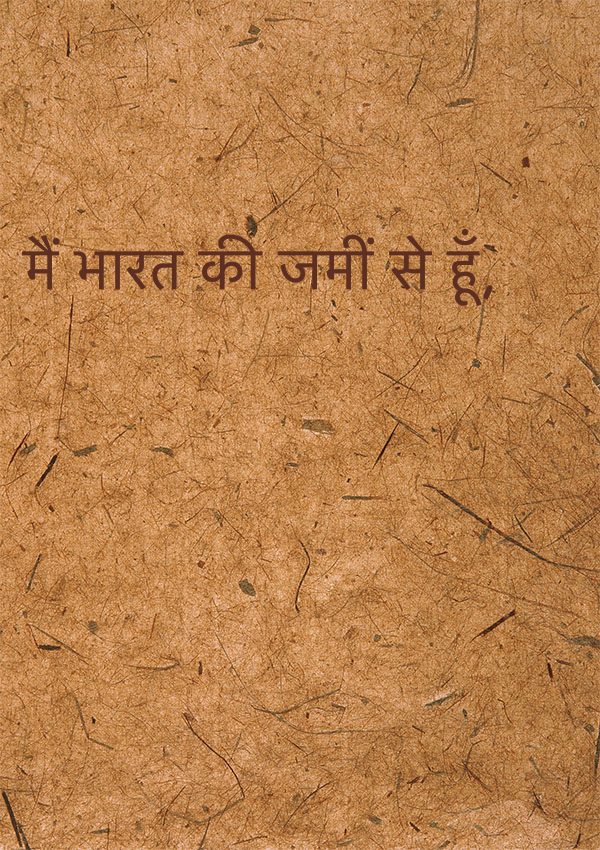 मैं भारत की जमीं से हूँ,